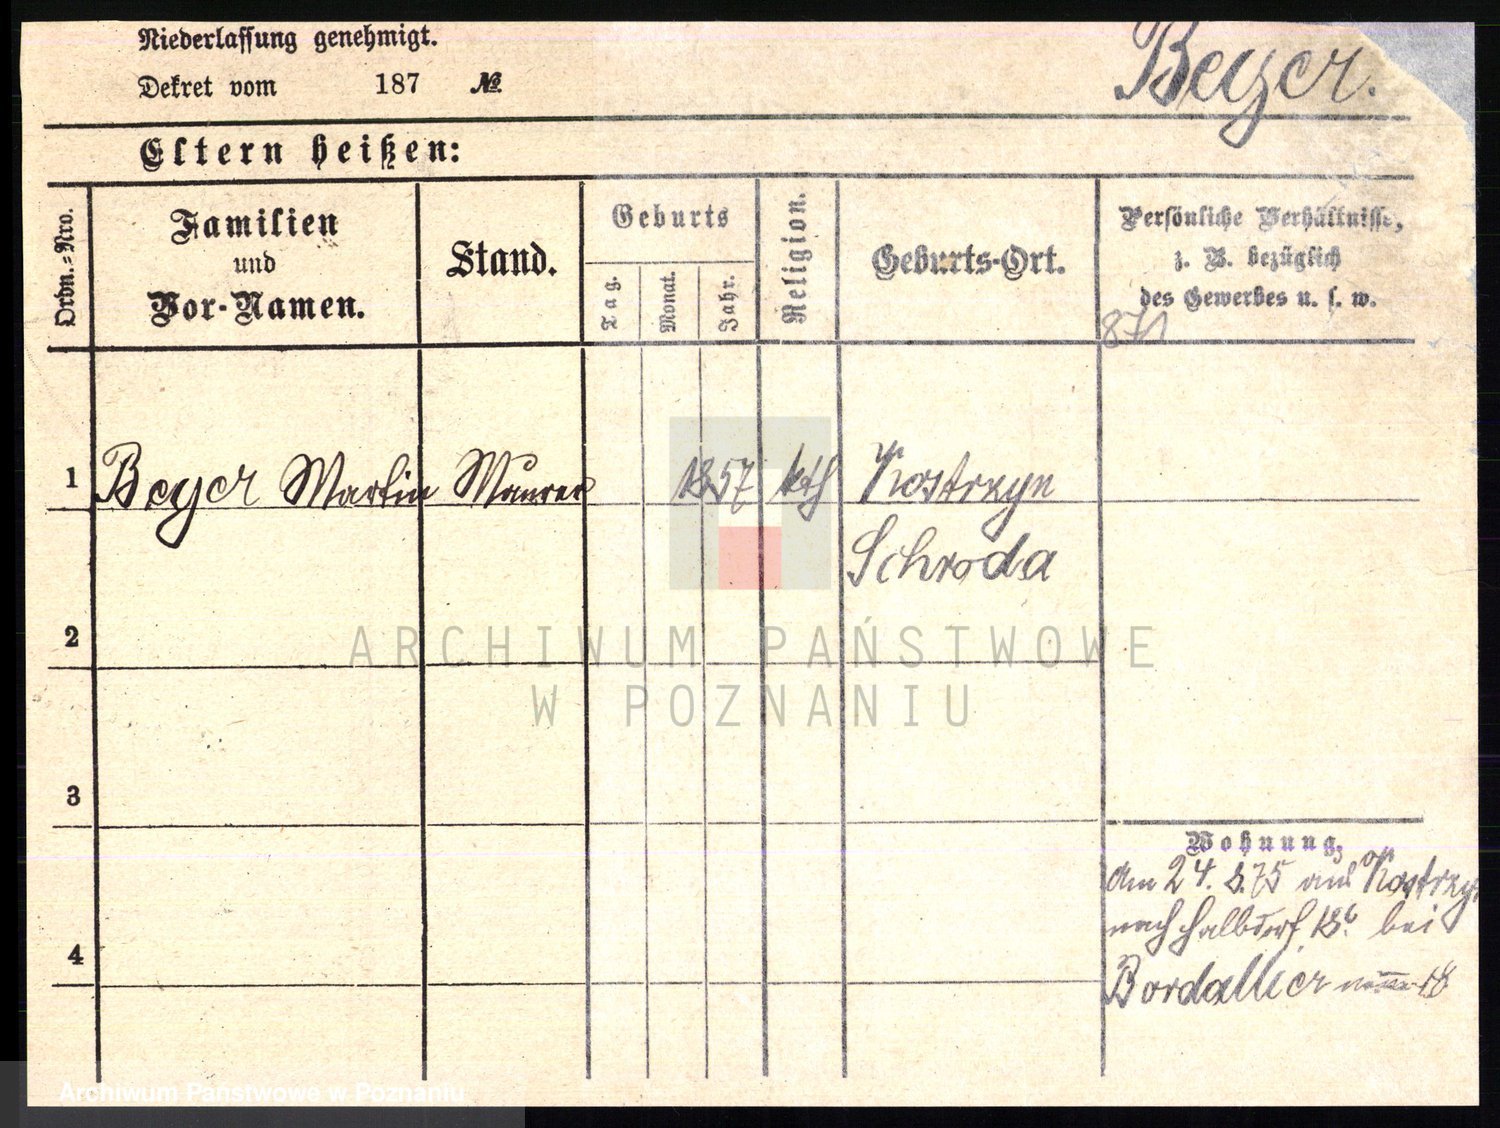 Niederlassung genehmigt.
Dekret vom 187 №
Beyer.
Eltern heißen:
Ordn.-Nro.
Familien
und
Vor-Namen.
Stand.
Geburts
Tag.
Monat.
Jahr.
Religion.
Geburts-Ort.
Persönliche Verhältnisse,
z. B. bezüglich
des Gewerbes u. s. w.
871
1 Beyer Martin Maurer 1857 kth Kostrzyn
Schroda
2
3
4
Wohnung.
Am 24. 8. 75 aus Kostrzyn
nach Halbdorf bei
Bordallier 18
ARCHIWUM PAŃSTWOWE
W POZNANIU
Archiwum Państwowe w Poznaniu